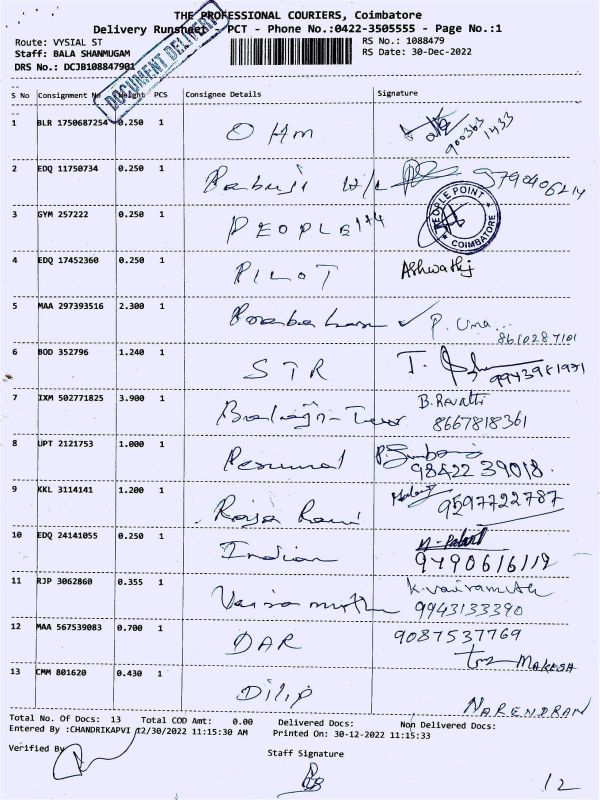 THE PROFESSIONAL COURIERS, Coimbatore
Delivery Runsheet - PCT - Phone No.:0422-3505555 - Page No.:1
Route: VYSIAL ST
RS No.: 1088479
Staff: BALA SHANMUGAM
RS Date: 30-Dec-2022
DRS No.: DCJB108847901
DOCUMENT DELIVERY
S No Consignment No Weight PCS Consignee Details Signature
1 BLR 1750687254 0.250 1 OHM
900363 1433
2 EDQ 11750734 0.250 1 9790406214
3 GYM 257222 0.250 1 PEOPLE
PEOPLE POINT
COIMBATORE
4 EDQ 17452360 0.250 1 PILOT Ashwathi
5 MAA 297393516 2.300 1 Prabakaran P. Uma
8610287101
6 BOD 352796 1.240 1 STR
9943981971
7 IXM 502771825 3.900 1 B. Revathi
8667818361
8 UPT 2121753 1.000 1 Perumal
98422 39018
9 KKL 3114141 1.200 1 Raja Rani
9597722787
10 EDQ 24141055 0.250 1 Indian
9790616119
11 RJP 3062860 0.355 1 Vairamuthu K. vairamuthu
9943133390
12 MAA 567539083 0.700 1 DAR 9087537769
MAKESH
13 CMM 801620 0.430 1 Dilip NARENDRAN
Total No. Of Docs: 13 Total COD Amt: 0.00 Delivered Docs: Non Delivered Docs:
Entered By :CHANDRIKAPVI 12/30/2022 11:15:30 AM Printed On: 30-12-2022 11:15:33
Verified By
Staff Signature
12